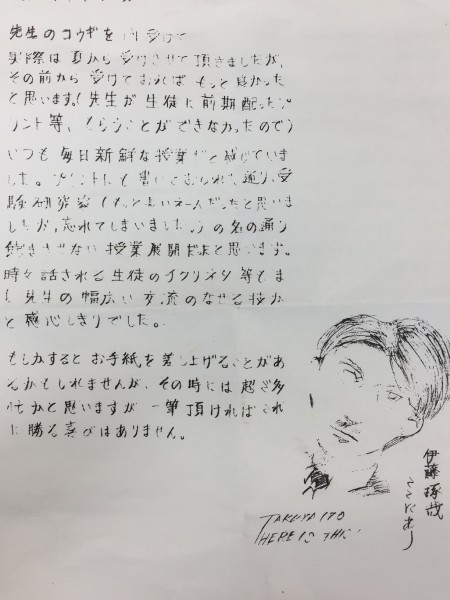 先生のコウギを 受けて
実際は夏から受けさせて頂きましたが、
その前から受けておればもっと良かった
と思います。(先生が生徒に前期配ったプ
リント等、もらうことができなかったので)
いつも毎日新鮮な授業だと感じていま
した。プリントにも書いておられた通り、受
験研究家(もっと だったと思いま
したが、忘れてしまいました)の名の通り
飽きさせない授業展開だなと思います。
時々話される生徒のイクリネタ等とま
も先生の幅広い交流のなせる技か
と感心しきりでした。
もしかするとお手紙を差し上げることがあ
るかもしれませんが、その時には超ご多
忙かと思いますが一筆頂ければそれ
に勝る喜びはありません。
伊藤琢哉
ここにあり
TAKUYA ITO
HERE IS THIS